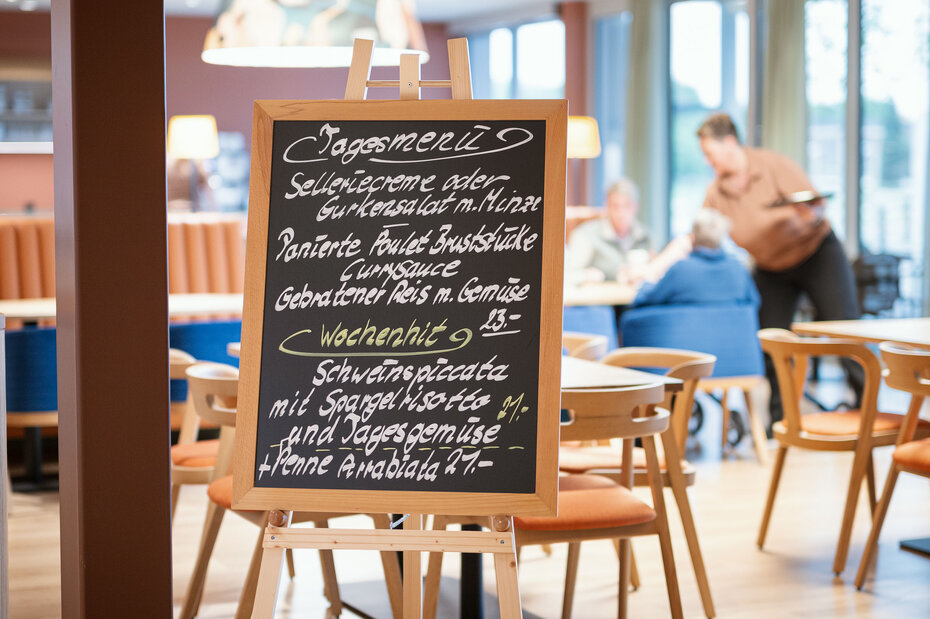 Tagesmenü
Selleriecreme oder
Gurkensalat m. Minze
Panierte Poulet Bruststücke
Currysauce
Gebratener Reis m. Gemüse
23.-
Wochenhit
Schweinspiccata
mit Spargelrisotto 21.-
und Tagesgemüse
+ Penne Arrabiata 21.-